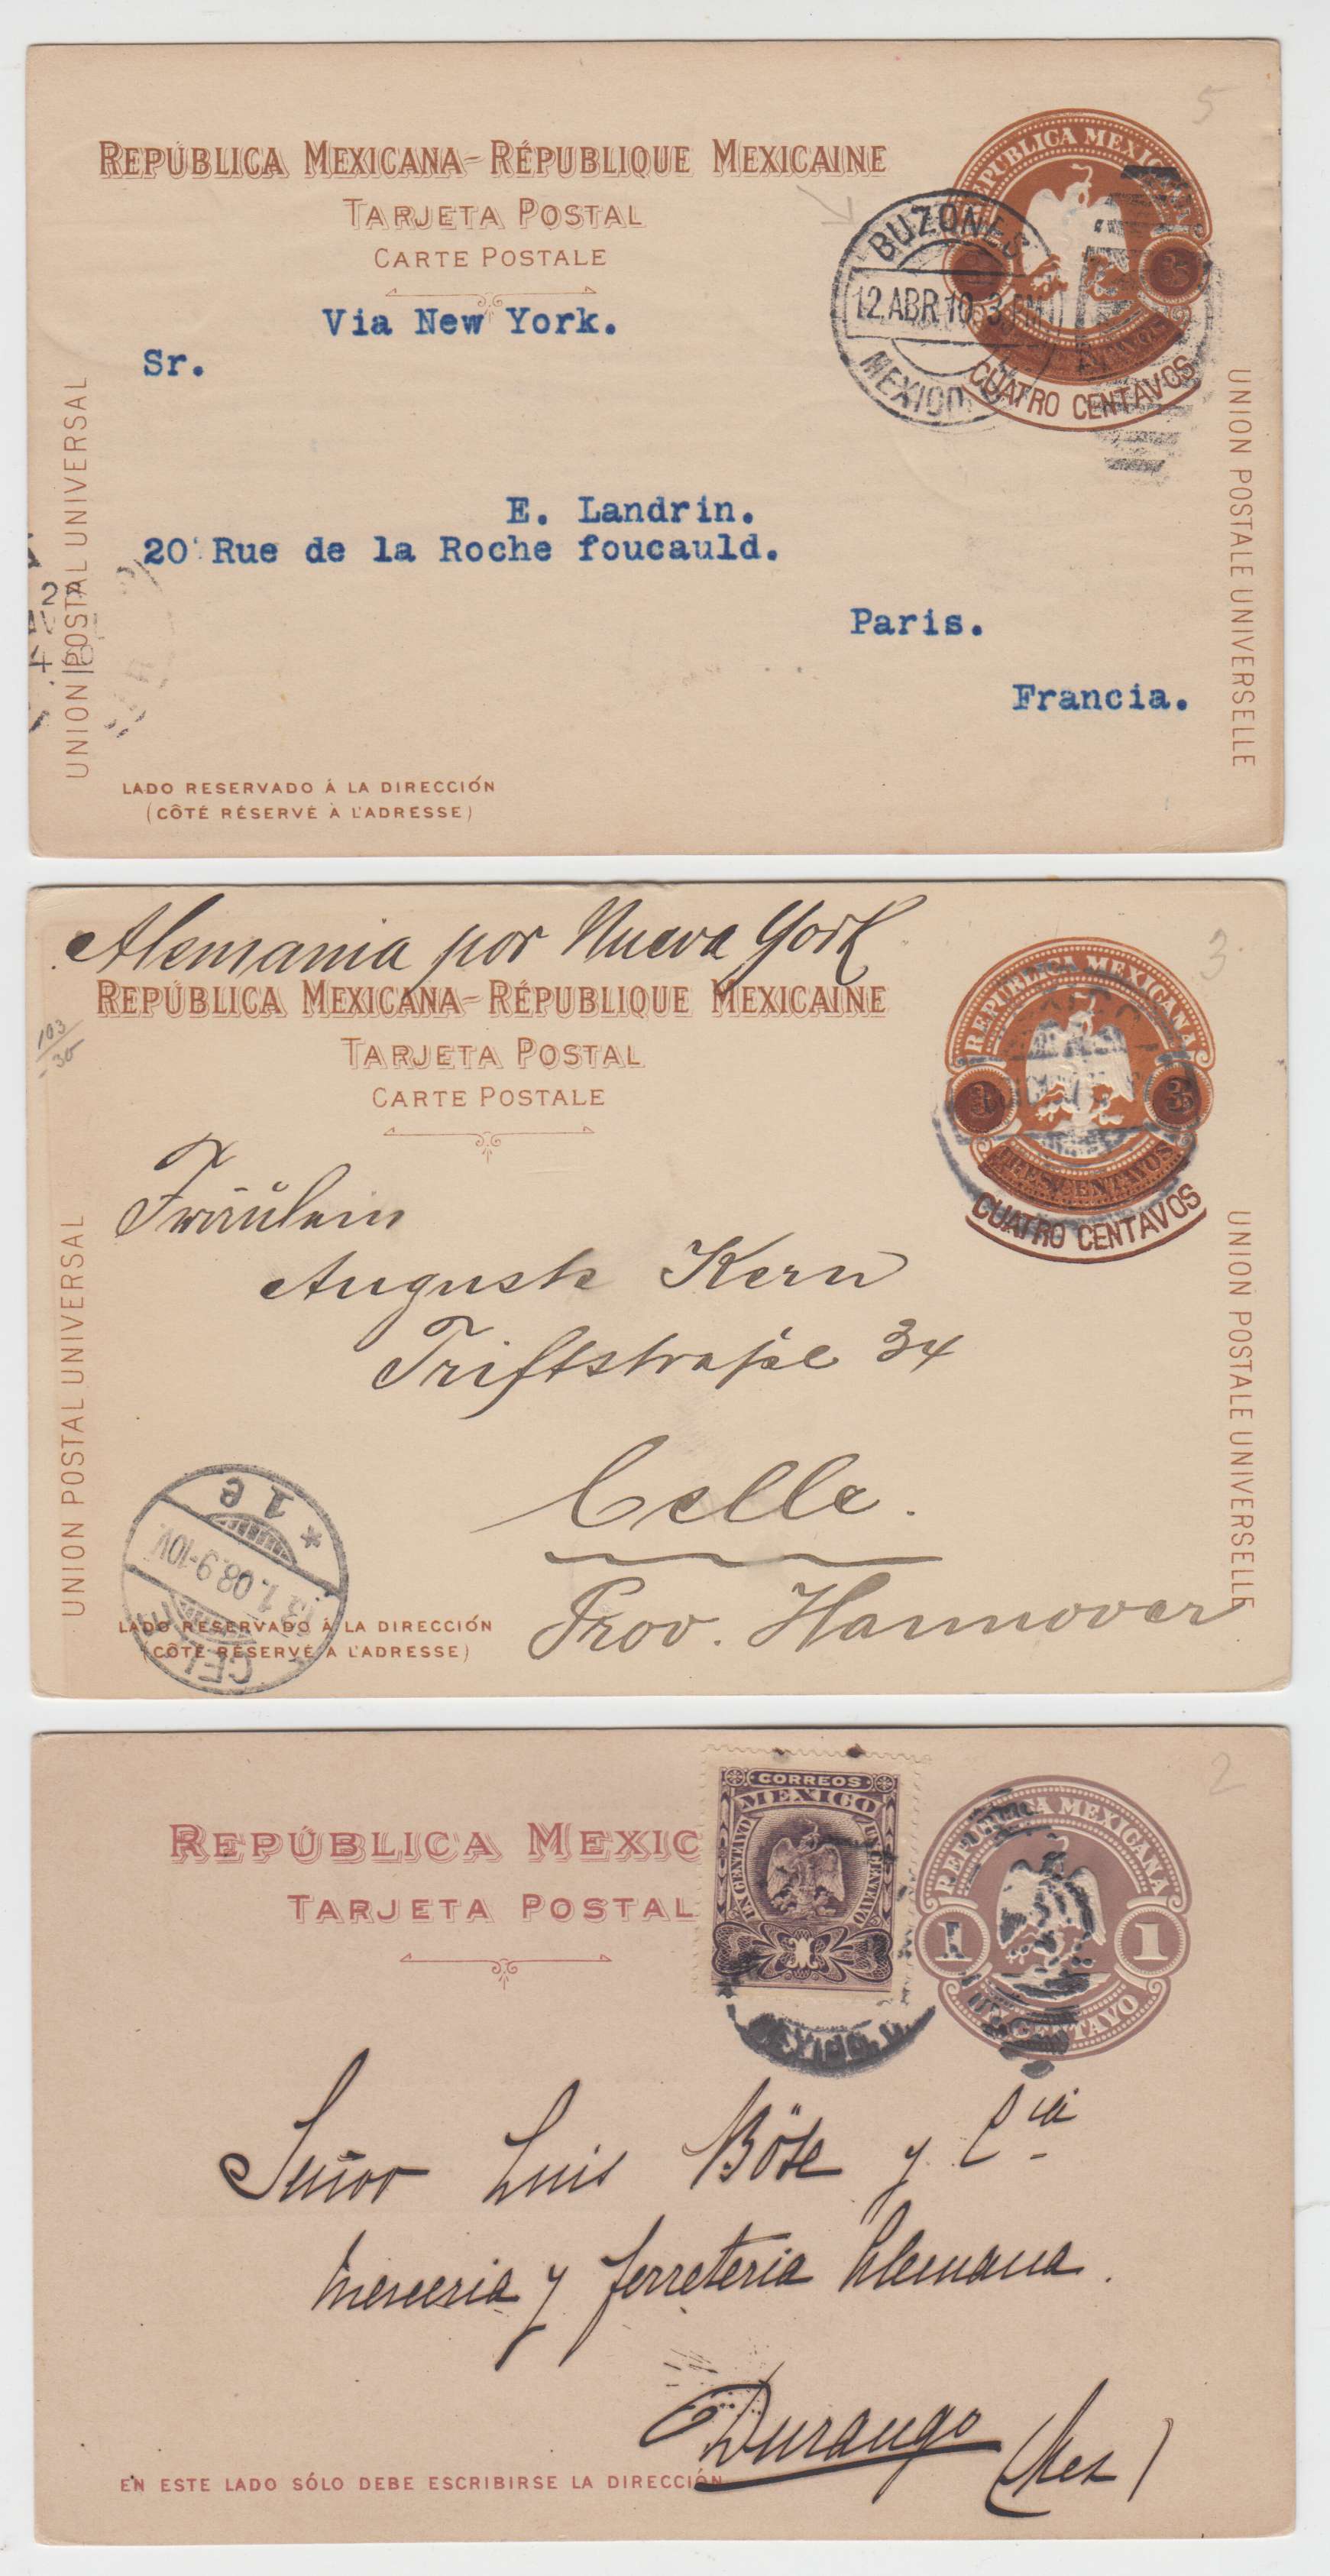 5
REPÚBLICA MEXICANA-RÉPUBLIQUE MEXICAINE
TARJETA POSTAL
CARTE POSTALE
REPÚBLICA MEXICANA
3 3
CUATRO CENTAVOS
BUZONES
12 ABR 10 3 PM
MEXICO
Via New York.
Sr.
E. Landrin.
20 Rue de la Roche foucauld.
Paris.
Francia.
UNION POSTAL UNIVERSAL
UNION POSTALE UNIVERSELLE
LADO RESERVADO Á LA DIRECCIÓN
(CÔTÉ RÉSERVÉ À L'ADRESSE)
Alemania por Nueva York
3
REPÚBLICA MEXICANA-RÉPUBLIQUE MEXICAINE
TARJETA POSTAL
CARTE POSTALE
103
30
REPÚBLICA MEXICANA
3 3
TRES CENTAVOS
CUATRO CENTAVOS
Fräulein
Auguste Kern
Triftstraße 34
Celle.
Prov. Hannover
UNION POSTAL UNIVERSAL
UNION POSTALE UNIVERSELLE
CELLE
13.1.08.9-10V.
* 1 e
LADO RESERVADO Á LA DIRECCIÓN
(CÔTÉ RÉSERVÉ À L'ADRESSE)
2
REPÚBLICA MEXIC
TARJETA POSTAL
CORREOS
MEXICO
UN CENTAVO UN CENTAVO
1
REPÚBLICA MEXICANA
1 1
UN CENTAVO
MEXICO. D.
Señor Luis Böse y Cia
Merceria y ferreteria Alemana.
Durango (Mex)
EN ESTE LADO SÓLO DEBE ESCRIBIRSE LA DIRECCIÓN